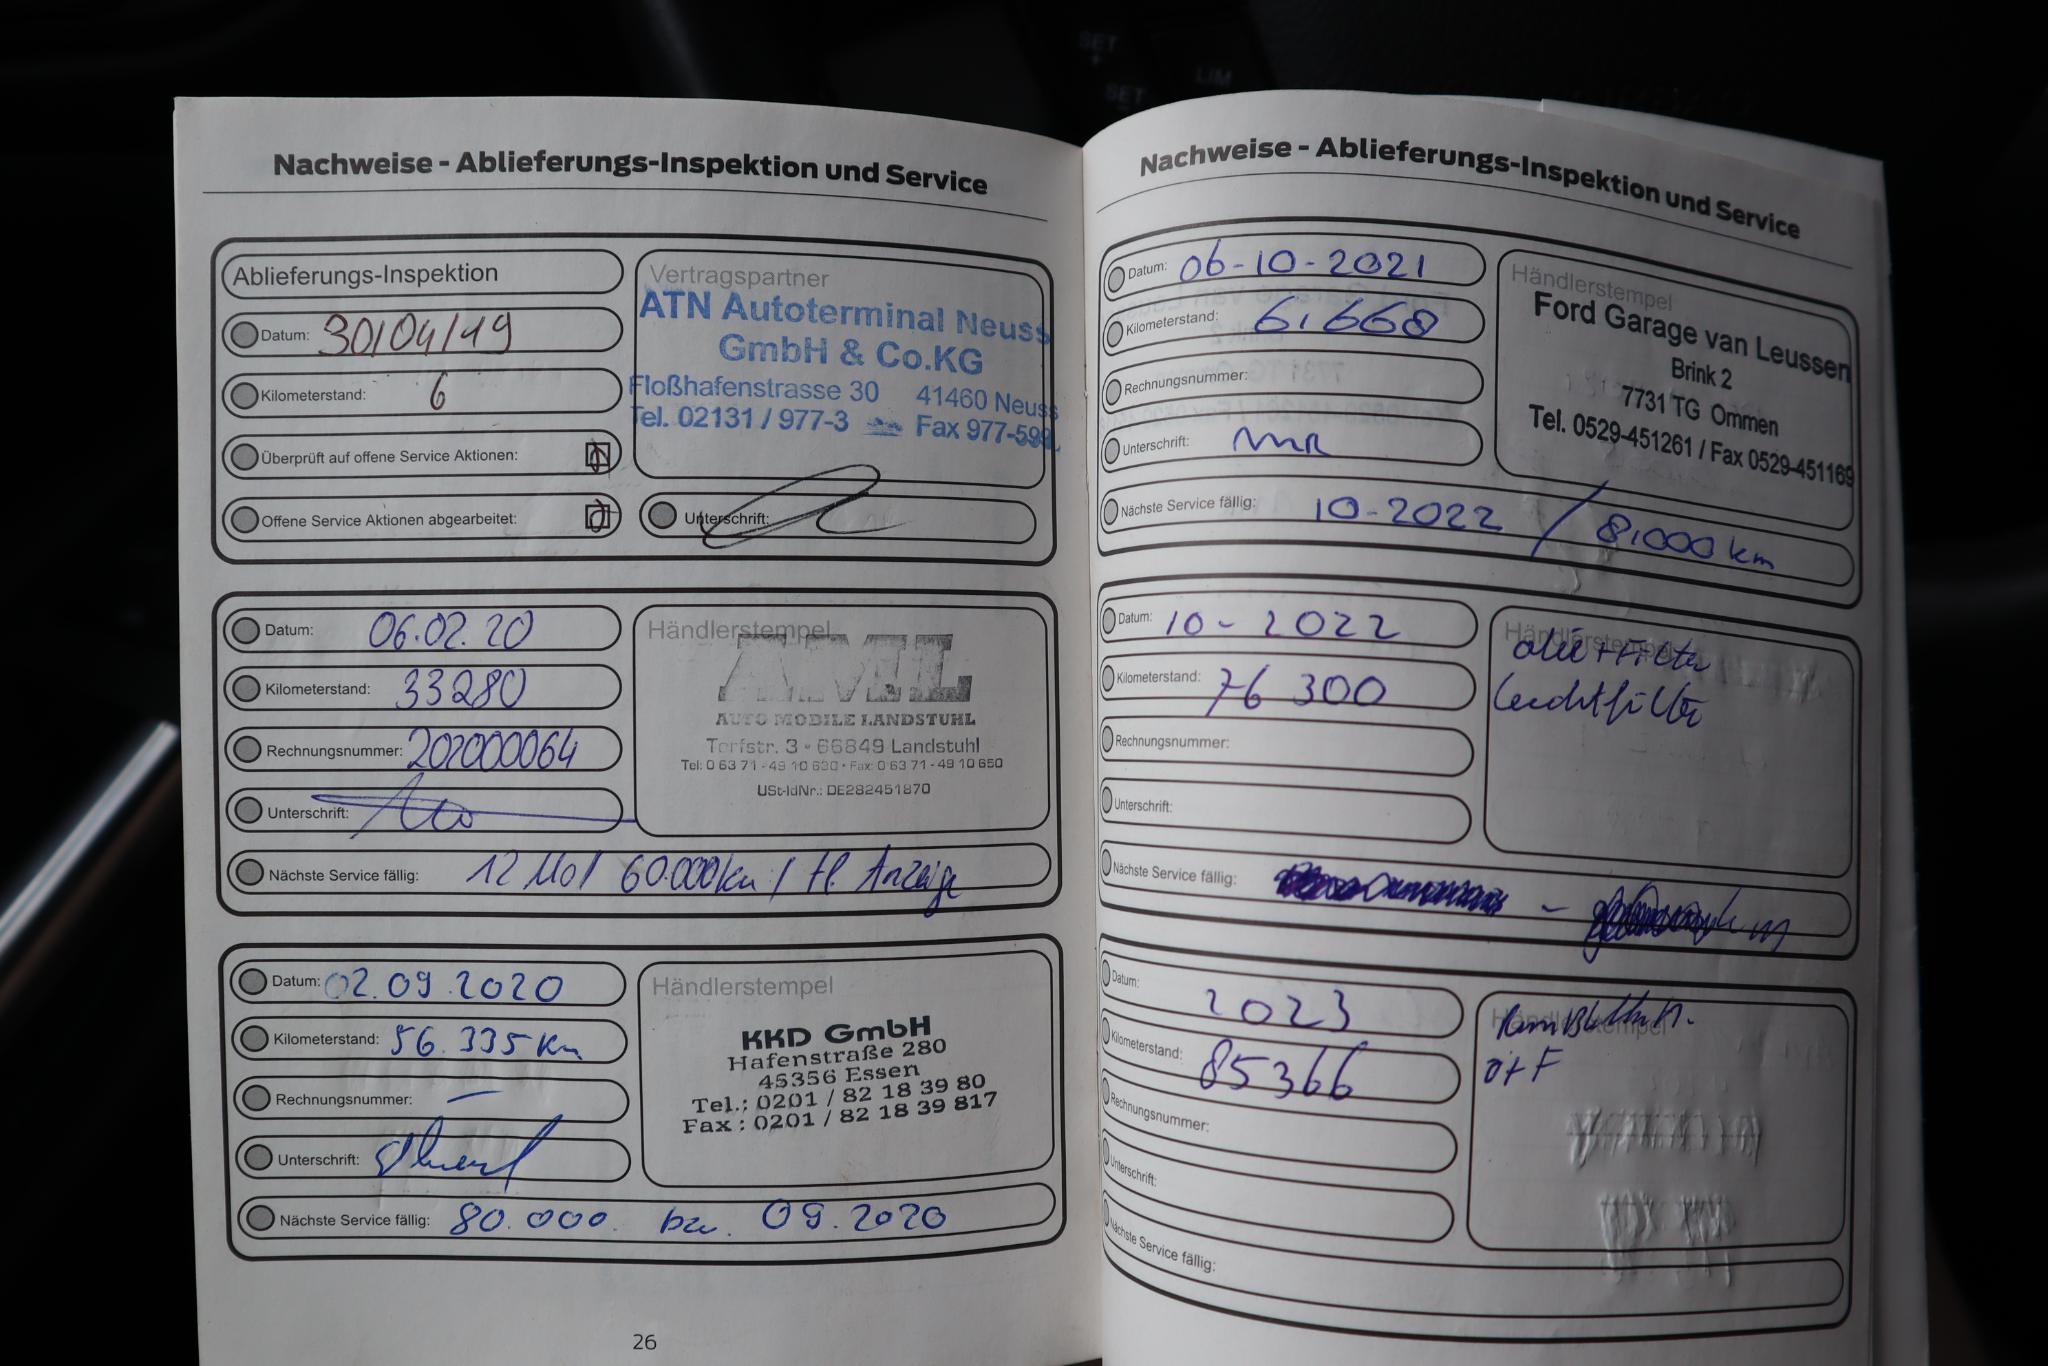 SET
+
LIM
SET
Nachweise - Ablieferungs-Inspektion und Service
Ablieferungs-Inspektion
Datum: 30/04/19
Kilometerstand: 6
Überprüft auf offene Service Aktionen:
Offene Service Aktionen abgearbeitet:
Vertragspartner
ATN Autoterminal Neuss
GmbH & Co.KG
Floßhafenstrasse 30 41460 Neuss
Tel. 02131 / 977-3 Fax 977-599
Unterschrift:
Datum: 06.02.20
Kilometerstand: 33280
Rechnungsnummer: 202000064
Unterschrift:
Händlerstempel
AML
AUTO MOBILE LANDSTUHL
Torfstr. 3 - 66849 Landstuhl
Tel: 0 63 71 - 49 10 630 • Fax: 0 63 71 - 49 10 650
USt-IdNr.: DE282451870
Nächste Service fällig: 12 Mo / 60.000km / lt. Anzeige
Datum: 02.09.2020
Kilometerstand: 56.335 km
Rechnungsnummer: —
Unterschrift:
Händlerstempel
KKD GmbH
Hafenstraße 280
45356 Essen
Tel.: 0201 / 82 18 39 80
Fax : 0201 / 82 18 39 817
Nächste Service fällig: 80.000. bzw. 09.2020
26
Nachweise - Ablieferungs-Inspektion und Service
Datum: 06-10-2021
Kilometerstand: 61.668
Rechnungsnummer:
Unterschrift:
Händlerstempel
Ford Garage van Leussen
Brink 2
7731 TG Ommen
Tel. 0529-451261 / Fax 0529-451169
Nächste Service fällig: 10-2022 / 81.000 km
Datum: 10-2022
Kilometerstand: 76 300
Rechnungsnummer:
Unterschrift:
Händlerstempel
olie + filter
luchtfilter
Nächste Service fällig:
Datum: 2023
Kilometerstand: 85366
Rechnungsnummer:
Unterschrift:
Händlerstempel
O+F
Nächste Service fällig: